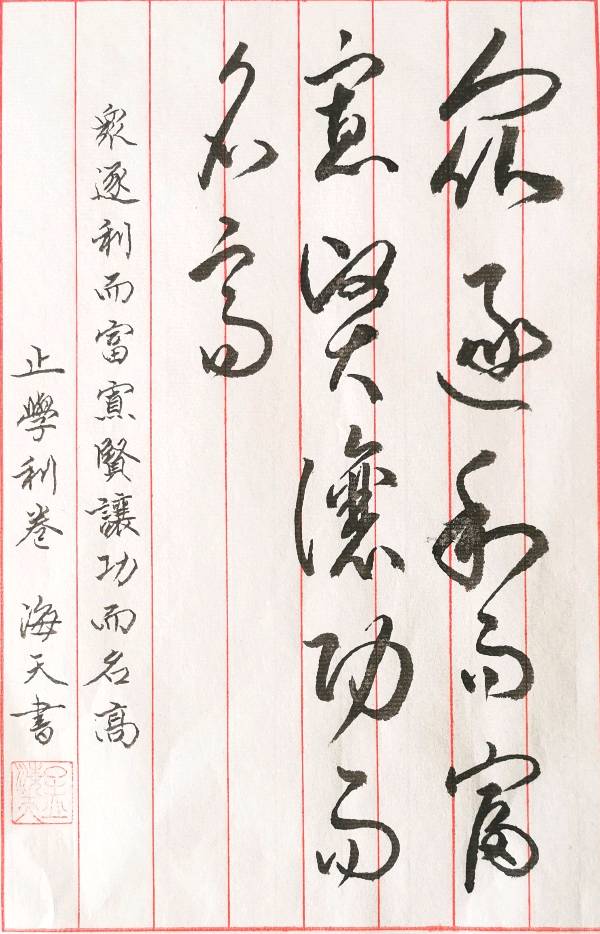 眾逐利而富
寡賢讓功而
名高
眾逐利而富寡賢讓功而名高
止學利卷 海天書